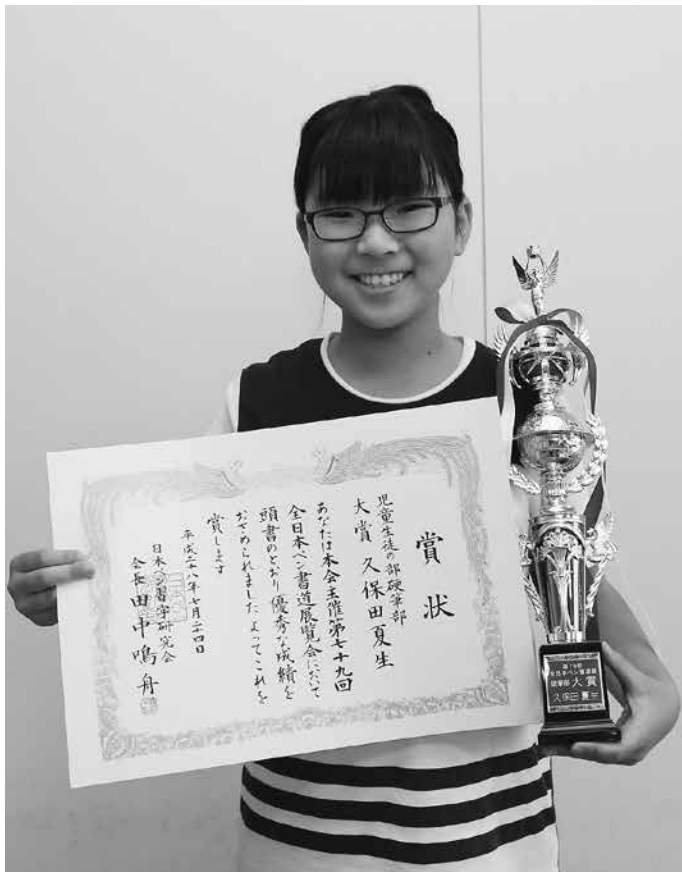 賞状
児童生徒の部硬筆部
大賞 久保田夏生
あなたは本会主催第七十九回
全日本ペン書道展覧会において
頭書のとおり優秀な成績を
おさめられました よってこれを
賞します
平成二十八年七月二十四日
日本ペン習字研究会
会長 田中鳴舟
第79回
全日本ペン書道展
硬筆部 大賞
久保田 夏生